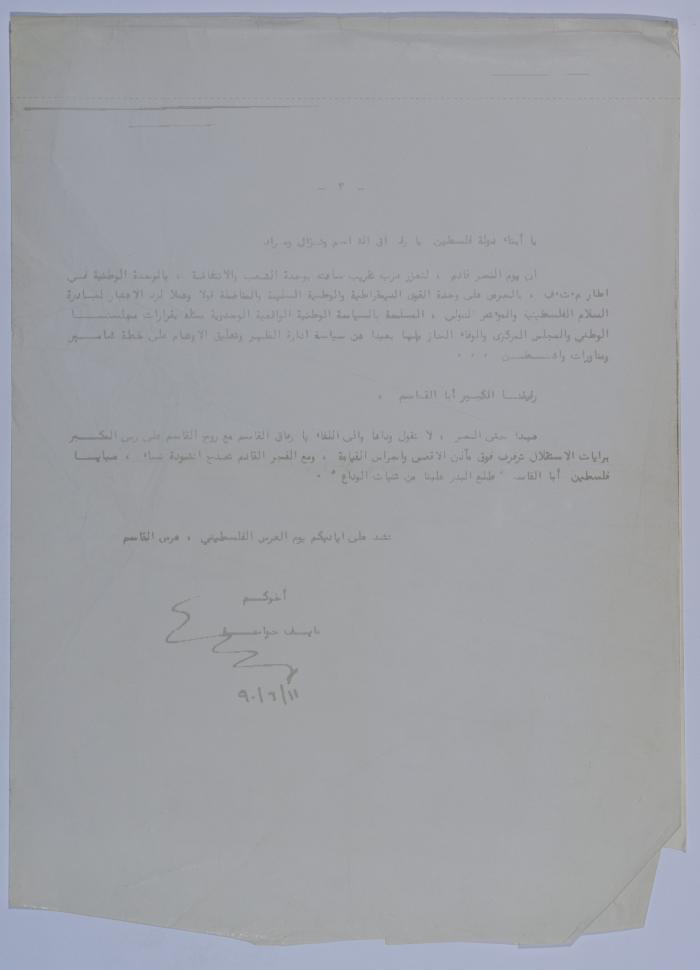 - ٣ -
يا أبناء دولة فلسطين يا رفاق القاسم ونزال ومراد
ان يوم النصر قادم ، لنعزز درب تقريب ساعته بوحدة الشعب والانتفاضة ، بالوحدة الوطنية فــي
اطار م٠ت٠ف ، بالحرص على وحدة القوى الديمقراطية والوطنية السليمة والمناضلة قولا وعملا لرد الاعتبار لمبادرة
السلام الفلسطينية والمؤتمر الدولي ، المسلحة بالسياسة الوطنية الواقعية الوحدوية ممثلة بقرارات مجلسنـــا
الوطني والمجلس المركزي والوفاء الحار لها بعيدا عن سياسة ادارة الظهر وتعليق الاوهام على خطة شاميــر
ومناورات واشنــطــن ٠ ٠ ٠
رفيقنــا الكبــير أبا القــاسم ،
عهدا حتى النصر ، لا نقول وداعا والى اللقاء يا رفاق القاسم مع روح القاسم على درس العكبــر
برايات الاستقلال ترفرف فوق مآذن الاقصى واجراس القيامة ، ومع الفجر القادم تصدح انشودة نساء ، صبايـــا
فلسطين أبا القاسم " طلع البدر علينا من ثنيات الوداع " ٠
نشد على اياديكم يوم العرس الفلسطيني ، عرس القاسم
أخوكــــم
نايــف حواتمــــة
٩٠/٦/١١